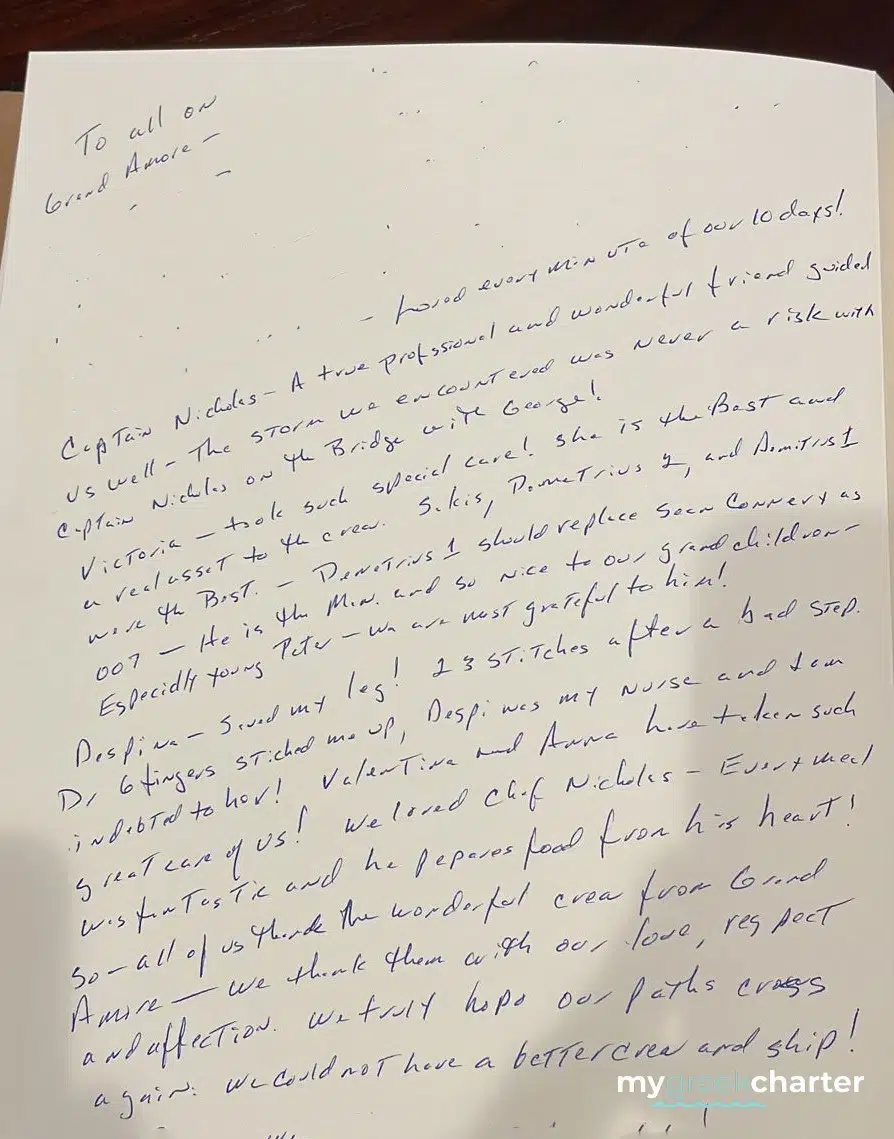 To all on
Grand Amore –
– Loved every minute of our 10 days!
Captain Nicholas – A true profssional and wonderful friend guided
us well – The storm we encountered was never a risk with
Captain Nicholas on th Bridge with George!
Victoria – took such special care! She is the Best and
a real asset to th crew. Sakis, Demetrius 2, and Demitrus 1
were th Best. – Demetrius 1 should replace Sean Connery as
007 – He is the Man. and so nice to our grandchildren –
Especially young Peter – we are most grateful to him!
Despina – Saved my leg! 23 stitches after a bad step.
Dr 6 fingers stiched me up, Despi was my nurse and I am
indebted to her! Valentina and Anna have taken such
great care of us! We loved Chef Nicholas – Every meal
was fantastic and he pepares food from his heart!
So – all of us thank the wonderful crew from Grand
Amore – we thank them with our love, respect
and affection. We truly hope our paths cross
again. We could not have a better crew and ship!
mygreekcharter